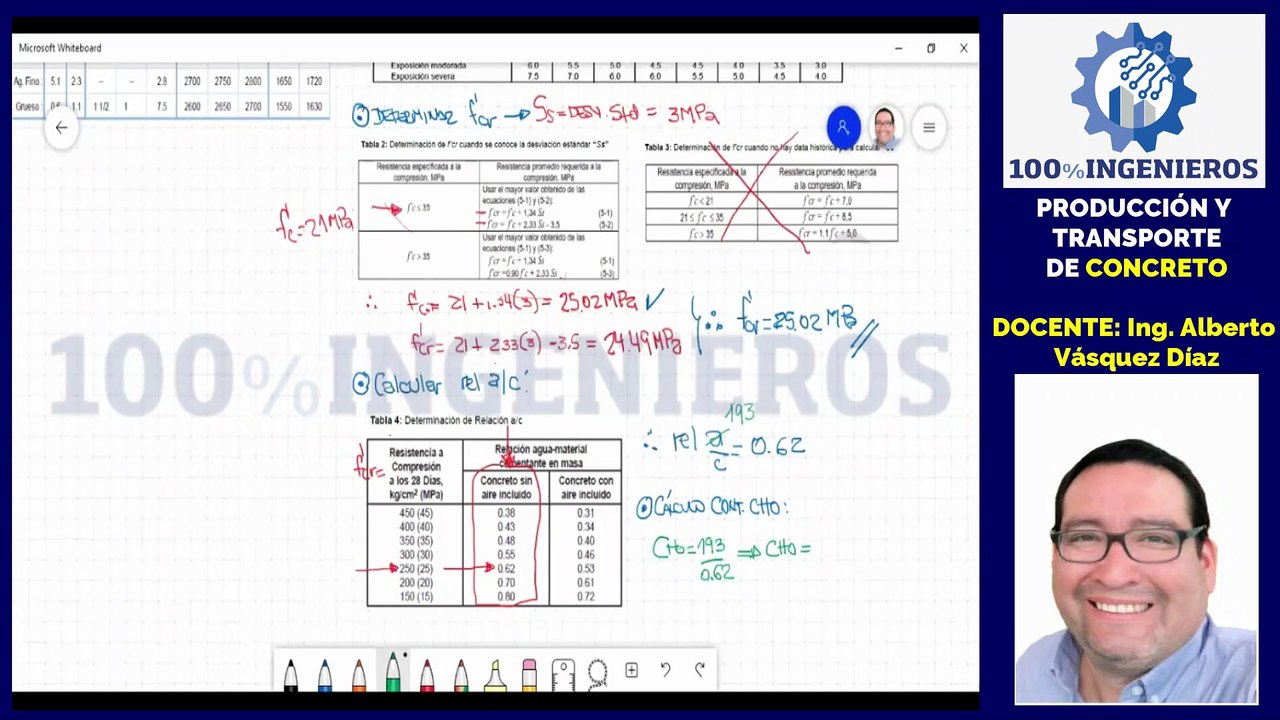 Microsoft Whiteboard
Ag. Fino 5.1 2.3 – – 2.8 2700 2750 2800 1650 1720
Grueso 0.6 1.1 1 1/2 1 7.5 2600 2650 2700 1550 1630
Exposición moderada 6.0 5.5 5.0 4.5 4.5 4.0 3.5 3.0
Exposición severa 7.5 7.0 6.0 6.0 5.5 5.0 4.5 4.0
DETERMINAR f'cr → Ss = DESV. Std = 3 MPa
Tabla 2: Determinación de f'cr cuando se conoce la desviación estándar "Ss"
Resistencia especificada a la compresión, MPa
Resistencia promedio requerida a la compresión, MPa
f'c ≤ 35
Usar el mayor valor obtenido de las
ecuaciones (5-1) y (5-2):
f'cr = f'c + 1,34 Ss (5-1)
f'cr = f'c + 2,33 Ss - 3,5 (5-2)
f'c > 35
Usar el mayor valor obtenido de las
ecuaciones (5-1) y (5-3):
f'cr = f'c + 1,34 Ss (5-1)
f'cr = 0,90 f'c + 2,33 Ss (5-3)
f'c = 21 MPa
Tabla 3: Determinación de f'cr cuando no hay data histórica para calcular
Resistencia especificada a la compresión, MPa
Resistencia promedio requerida a la compresión, MPa
f'c < 21 f'cr = f'c + 7,0
21 ≤ f'c ≤ 35 f'cr = f'c + 8,5
f'c > 35 f'cr = 1,1 f'c + 5,0
∴ f'cr = 21 + 1.34(3) = 25.02 MPa ✓
f'cr = 21 + 2.33(3) - 3.5 = 24.49 MPa
∴ f'cr = 25.02 MPa
100% INGENIEROS
Calcular rel a/c:
Tabla 4: Determinación de Relación a/c
f'cr =
Resistencia a
Compresión
a los 28 Días,
kg/cm² (MPa)
Relación agua-material
cementante en masa
Concreto sin
aire incluido
Concreto con
aire incluido
450 (45) 0.38 0.31
400 (40) 0.43 0.34
350 (35) 0.48 0.40
300 (30) 0.55 0.46
250 (25) 0.62 0.53
200 (20) 0.70 0.61
150 (15) 0.80 0.72
193
∴ rel a/c = 0.62
CÁLCULO CONT. CHO:
CHO = 193/0.62 ⇒ CHO =
100%INGENIEROS
PRODUCCIÓN Y
TRANSPORTE
DE CONCRETO
DOCENTE: Ing. Alberto
Vásquez Díaz